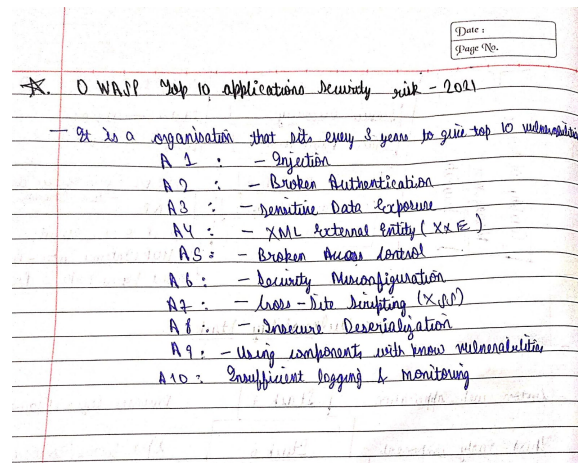 Date :
Page No.
☆. OWASP Top 10 applications security risk - 2021
- It is a organisation that sits every 3 years to give top 10 vulnerabilities
A 1 : - Injection
A 2 : - Broken Authentication
A3 : - Sensitive Data Exposure
A4 : - XML External Entity ( XXE )
A5 : - Broken Access Control
A6 : - Security Misconfiguration
A7 : - Cross - Site Scripting (XSS)
A8 : - Insecure Deserialization
A9 : - Using components with know vulnerabilities
A10 : Insufficient logging & monitoring